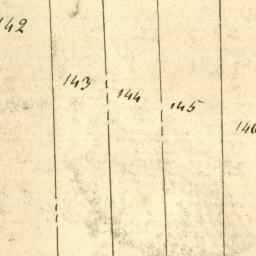 142
143
144
145